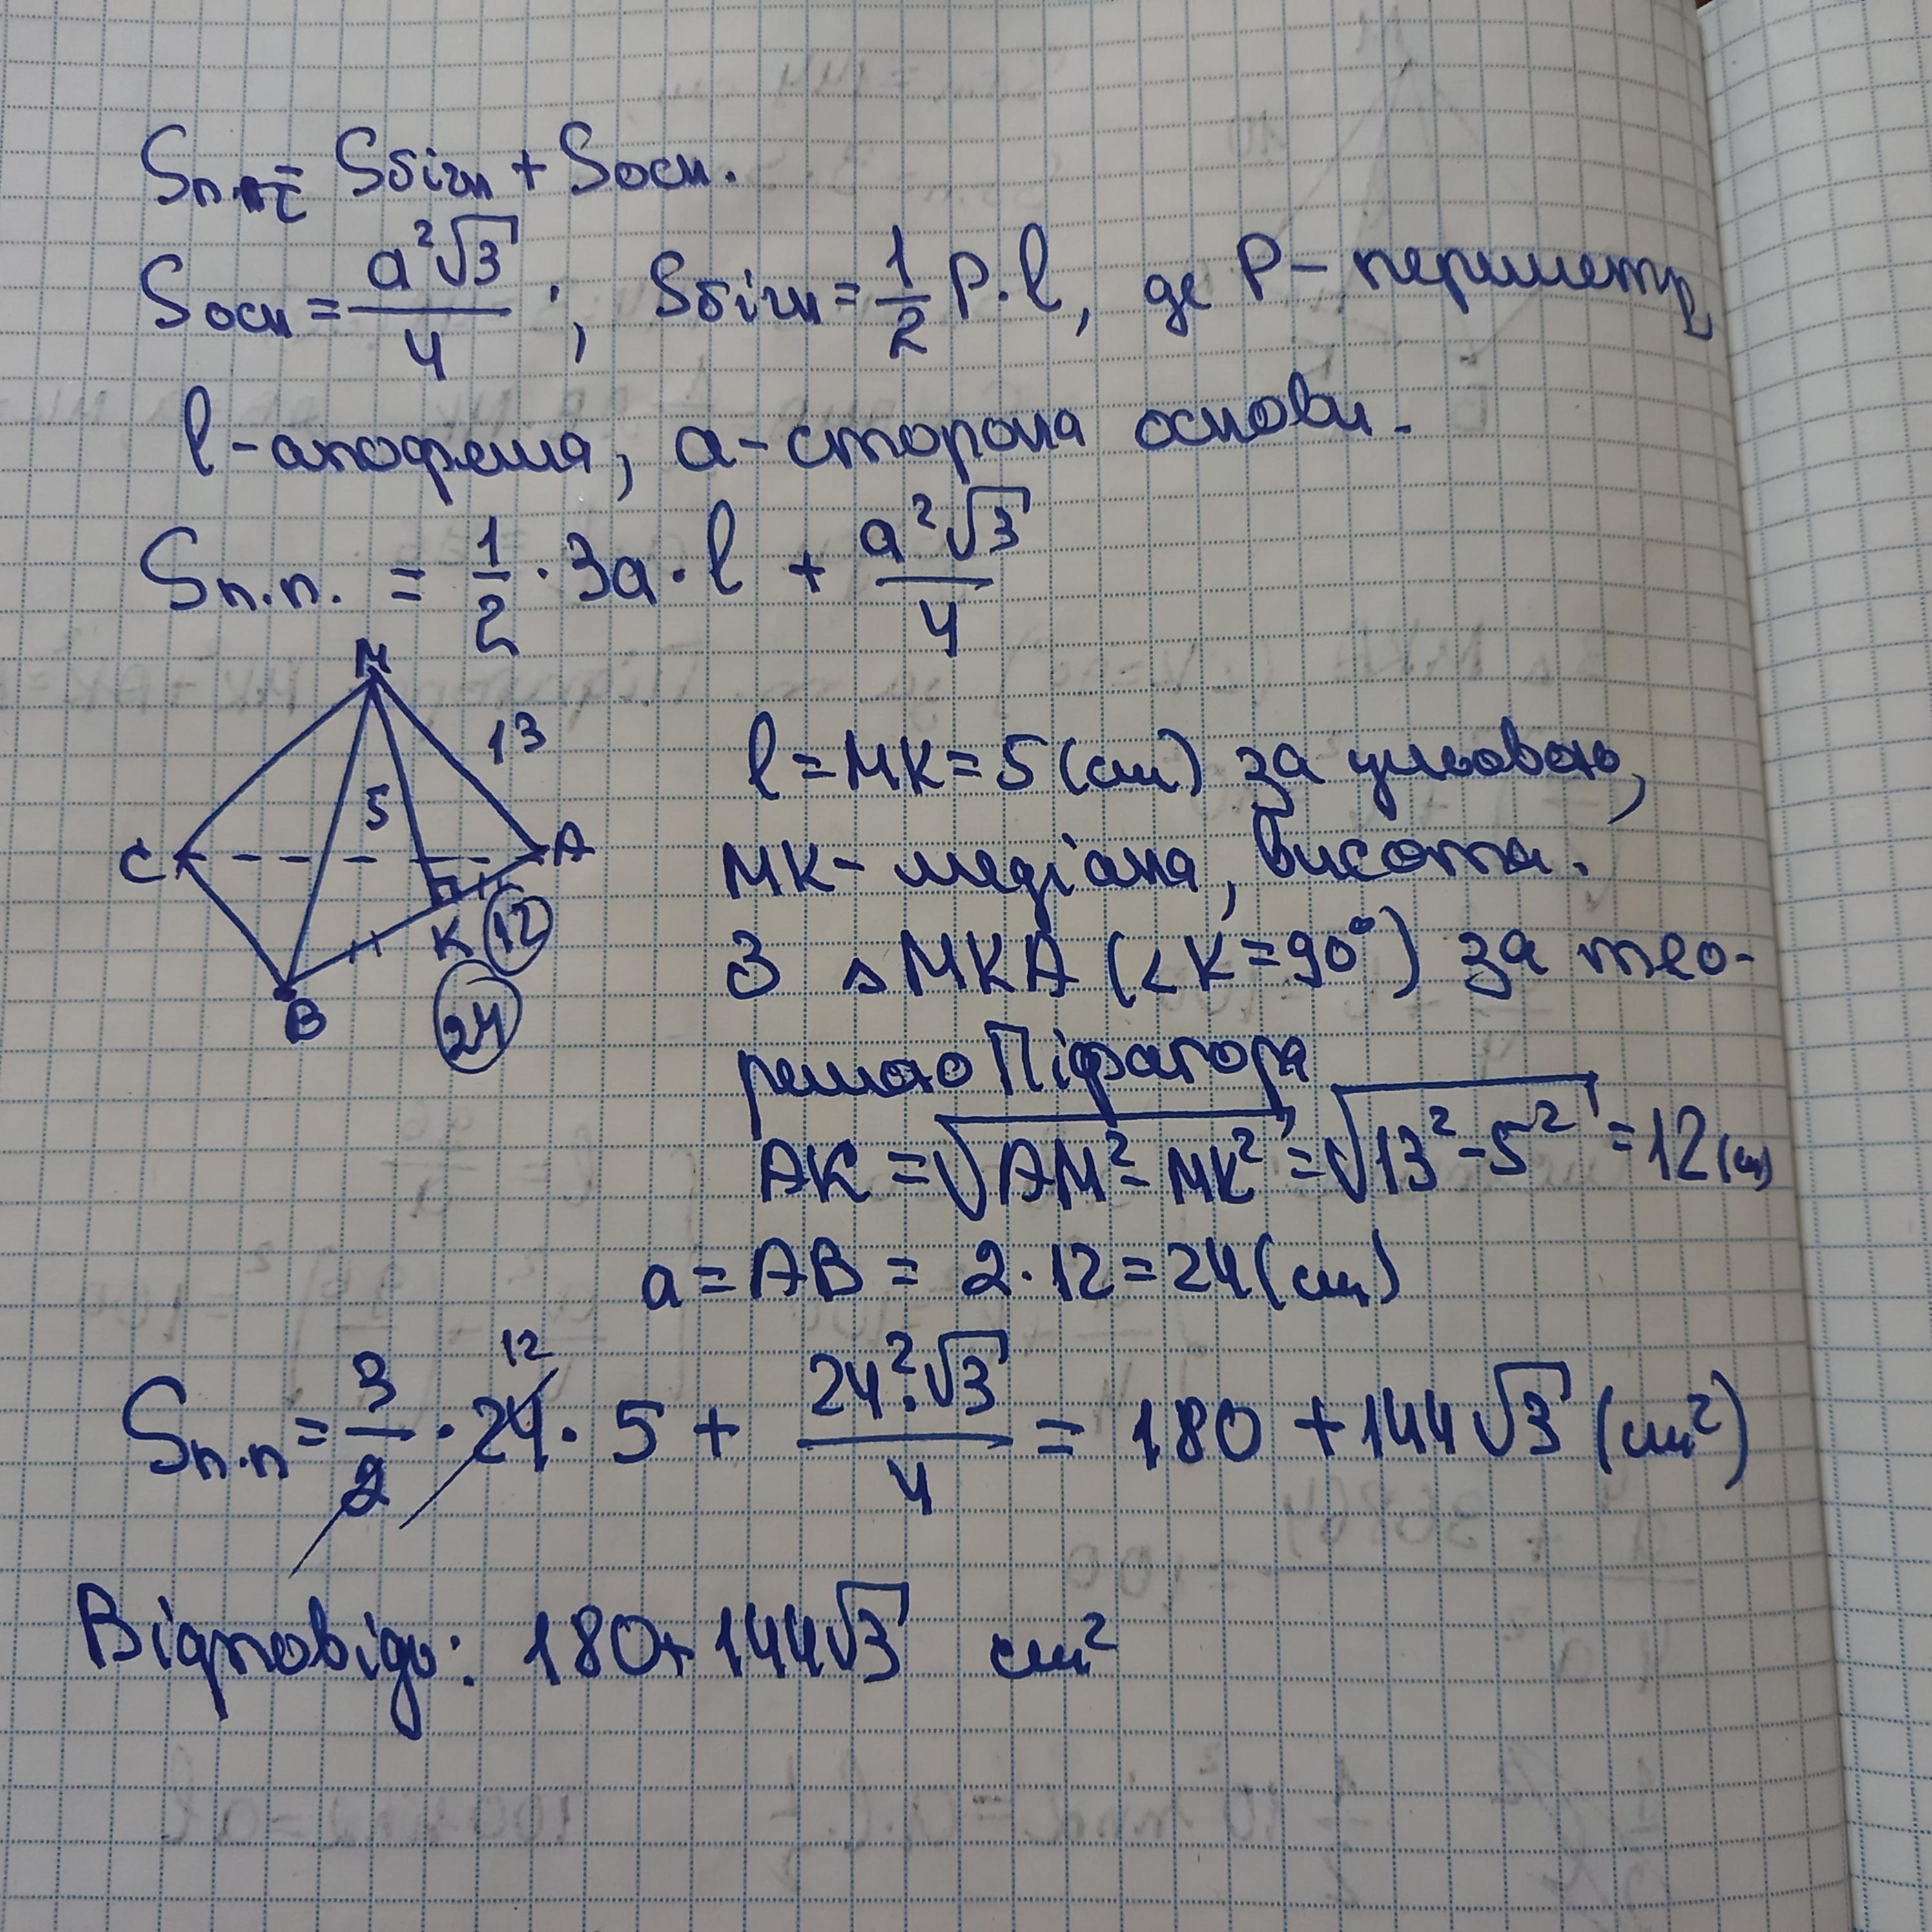 Sп.п = Sбічн + Sосн.
Sосн = a²√3/4 ; Sбічн = 1/2 P·l, де P – периметр
l – апофема, a – сторона основи.
Sп.п. = 1/2 · 3a · l + a²√3/4
M
13
5
C
A
K
12
B
24
l = MK = 5 (см) за умовою,
MK – медіана, висота.
З △MKA (∠K = 90°) за тео-
ремою Піфагора
AK = √(AM² - MK²) = √(13² - 5²) = 12 (см)
a = AB = 2 · 12 = 24 (см)
12
Sп.п = 3/2 · 24 · 5 + 24²·√3/4 = 180 + 144√3 (см²)
Відповідь: 180 + 144√3 см²